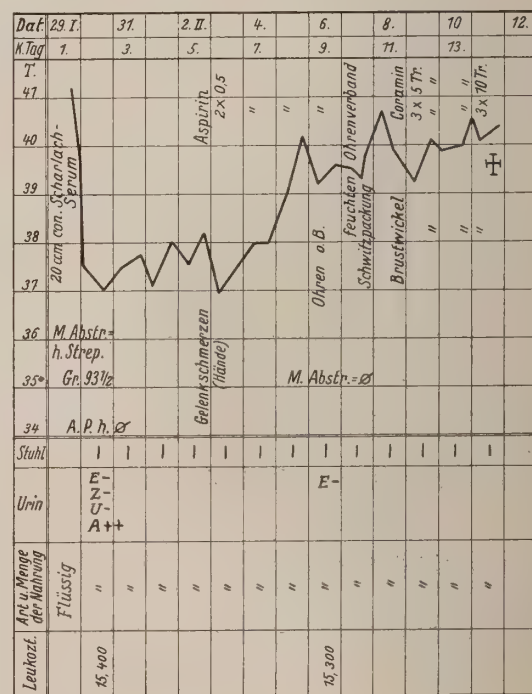 Dat. 29. I. 31. 2. II. 4. 6. 8. 10 12.
K.Tag 1. 3. 5. 7. 9. 11. 13.
T.
41
40
39
38
37
36
35°
34
20 cm con. Scharlach-
Serum
Aspirin " " "
2 x 0,5
Ohren o. B.
feuchten Ohrenverband
Schwitzpackung
Coramin " " "
3 x 5 Tr. " "
3 x 10 Tr.
Brustwickel " " "
M. Abstr.=
h. Strep.
Gr. 93½
A. P. h. ø
Gelenkschmerzen
(Hände)
M. Abstr.=ø
Stuhl I I I I I I I I I I I I I
Urin
E-
Z-
U-
A++
E-
Art u. Menge
der Nahrung
Flüssig " " " " " " " " " " " " "
Leukozt. 15,400 15,300